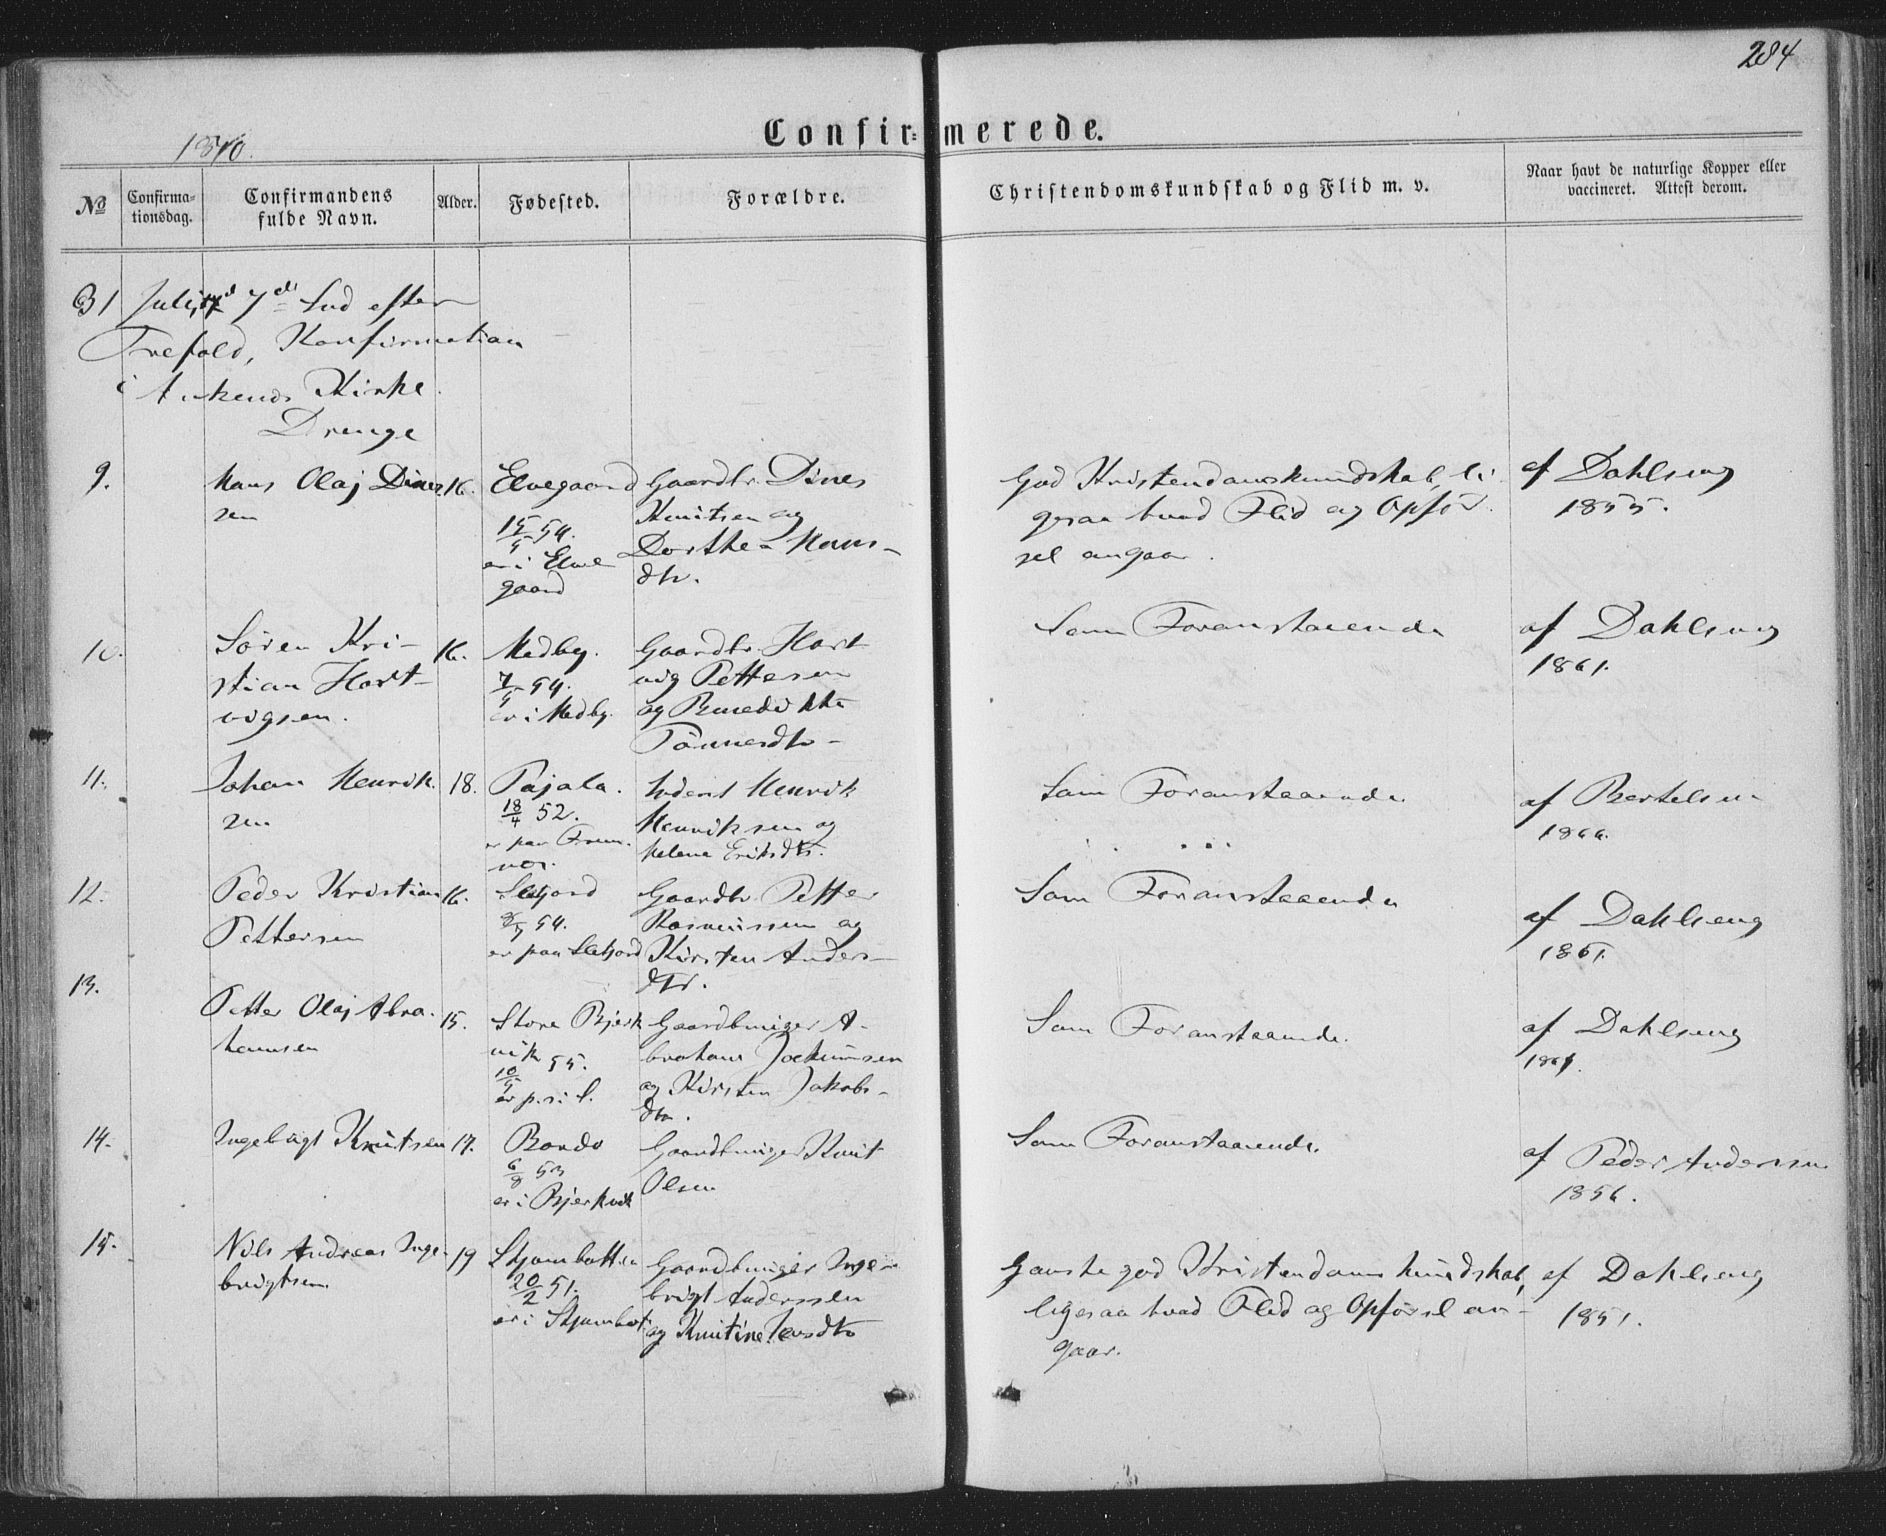 284
1870.
Confirmerede.
No
Confirma-
tionsdag.
Confirmandens
fulde Navn.
Alder.
Fødested.
Forældre.
Christendomskundskab og Flid m. v.
Naar havt de naturlige Kopper eller
vaccineret. Attest derom.
31 Juli, 7de Snd efter
Trefold, Konfirmation
i Ankenes Kirke.
Drenge
9.
Hans Olaj Dines
sen
16.
Elvegaard
15/5 54.
er i Elve
gaard
Gaardbr. Dines
Knutsen og
Dorthea Hans-
dtr.
God Kristendomskundskab, li
gesaa hvad Flid og Opfør
sel angaar.
af Dahlseng
1855.
10.
Søren Kri-
stian Hart-
vigsen.
16.
Medby.
54.
er i Medby.
Gaardbr. Hart
vig Pettesen
og Benedikte
Tønnesdtr
Som Foranstaaende
af Dahlseng
1861.
11.
Johan Henrik
sen
18.
Pajala.
18/4 52.
Inderst Henrik
Henriksen og
Helena Eriksdtr.
Som Foranstaaende
af Bertelsen
1866.
12.
Peder Kristian
Pettersen
16.
54.
er paa
Gaardbr. Petter
Rasmussen og
Kirsten Anders-
dtr.
Som Foranstaaende
af Dahlseng
1861.
13.
Petter Olaj Abra-
hamsen
15.
Store Bjerk
vik
10/5 55.
er p. s. t.
Gaardbruger A-
braham Jochumsen
og Kirsten Jakobs-
dtr.
Som Foranstaaende.
af Dahlseng
1861.
14.
Ingebrigt Knutsen
17.
Bardo
6/8 53
er i Bjerkvik
Gaardbruger Knut
Olsen
Som Foranstaaende.
af Peder Andersen
1856.
15.
Nils Andreas Inge-
brigtsen
19
Skjambotten
20/2 51.
er i Skjambot
Gaardbruger Inge-
brigt Anderssen
og Knutine
Ganske god Kristendomskundskab,
ligesaa hvad Flid og Opførsel an-
gaar.
af Dahlseng
1851.